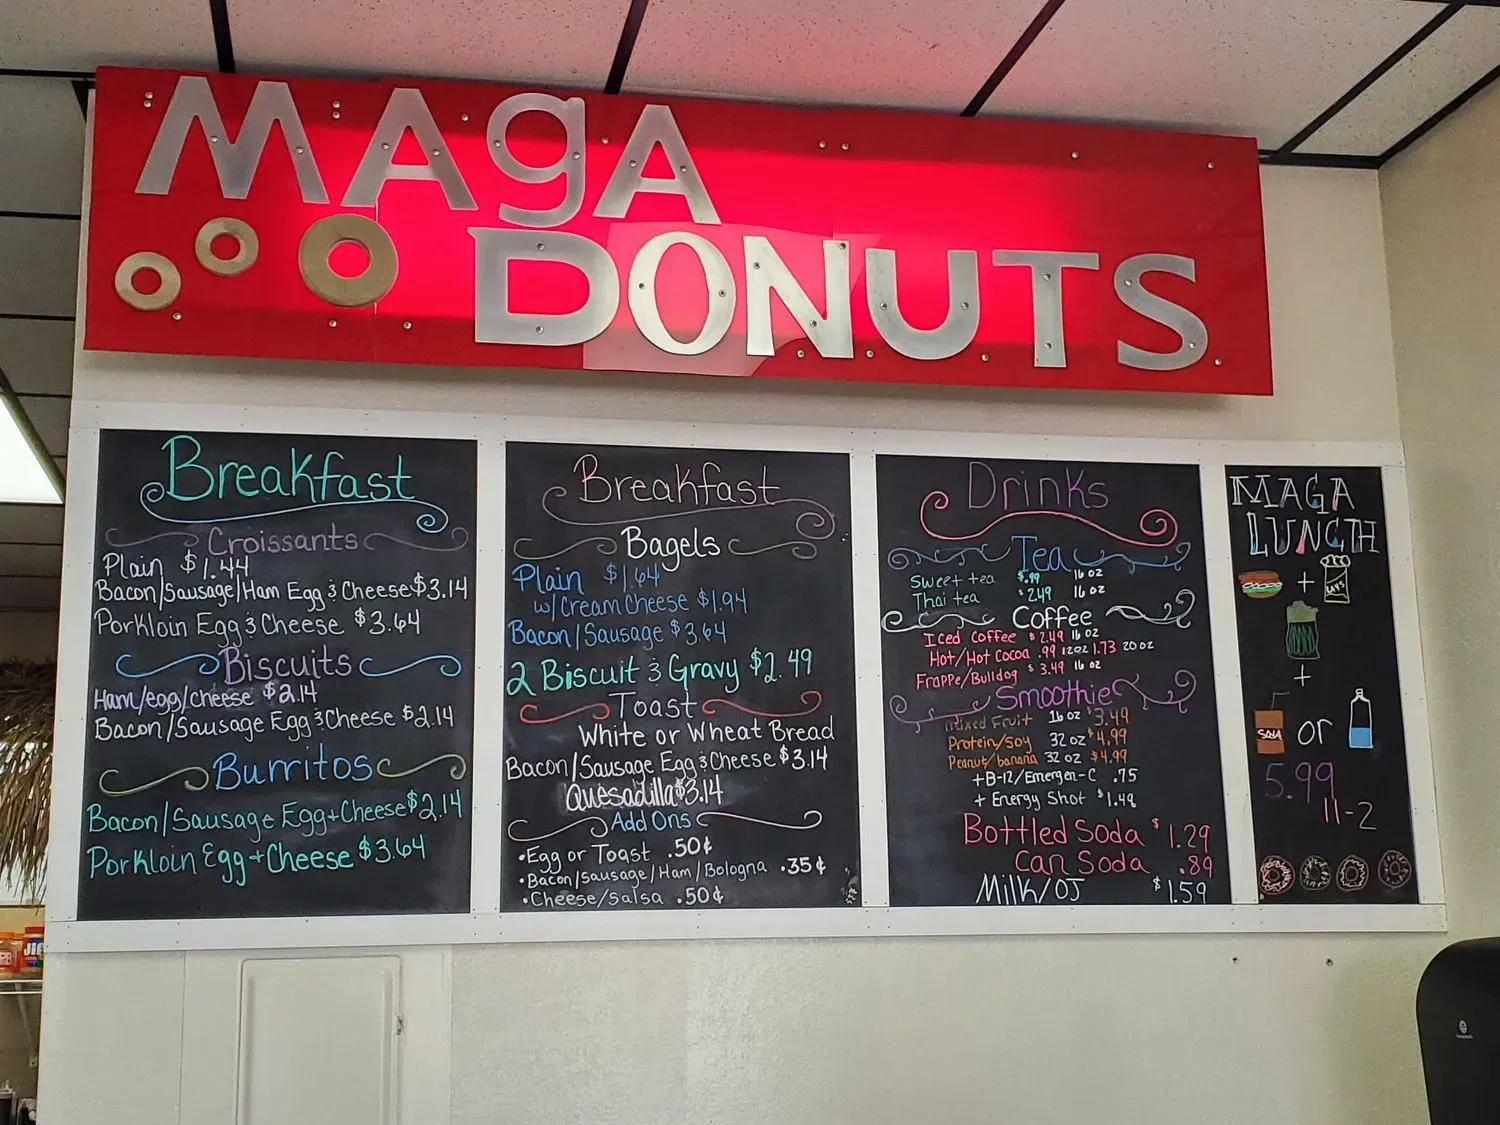 MAgA
DONUTS
Breakfast
Croissants
Plain $1.44
Bacon/Sausage/Ham Egg & Cheese $3.14
Porkloin Egg & Cheese $3.64
Biscuits
Ham/egg/cheese $2.14
Bacon/Sausage Egg & Cheese $2.14
Burritos
Bacon/Sausage Egg + Cheese $2.14
Porkloin Egg + Cheese $3.64
Breakfast
Bagels
Plain $1.64
w/ Cream Cheese $1.94
Bacon/Sausage $3.64
2 Biscuit & Gravy $2.49
Toast
White or Wheat Bread
Bacon/Sausage Egg & Cheese $3.14
Quesadilla $3.14
Add Ons
• Egg or Toast .50¢
• Bacon/Sausage/Ham/Bologna .35¢
• Cheese/Salsa .50¢
Drinks
Tea
Sweet tea $.99 16 oz
Thai tea $2.49 16 oz
Coffee
Iced Coffee $2.49 16 oz
Hot/Hot Cocoa .99 12oz 1.73 20 oz
Frappe/Bulldog $3.49 16 oz
Smoothie
Mixed Fruit 16 oz $3.49
Protein/Soy 32 oz $4.99
Peanut/banana 32 oz $4.99
+ B-12/Emergen-C .75
+ Energy Shot $1.49
Bottled Soda $1.29
Can Soda .89
Milk/OJ $1.59
MAGA
LUNCH
+
LAYS
+
SODA or
5.99
11-2
JIF